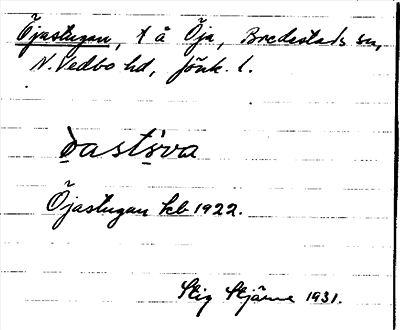 Öjastugan, t å Öja, Bredestads sn,
N. Vedbo hd, Jönk. l.
òastṡva
Öjastugan kb 1922.
Stig Stjärne 1931.